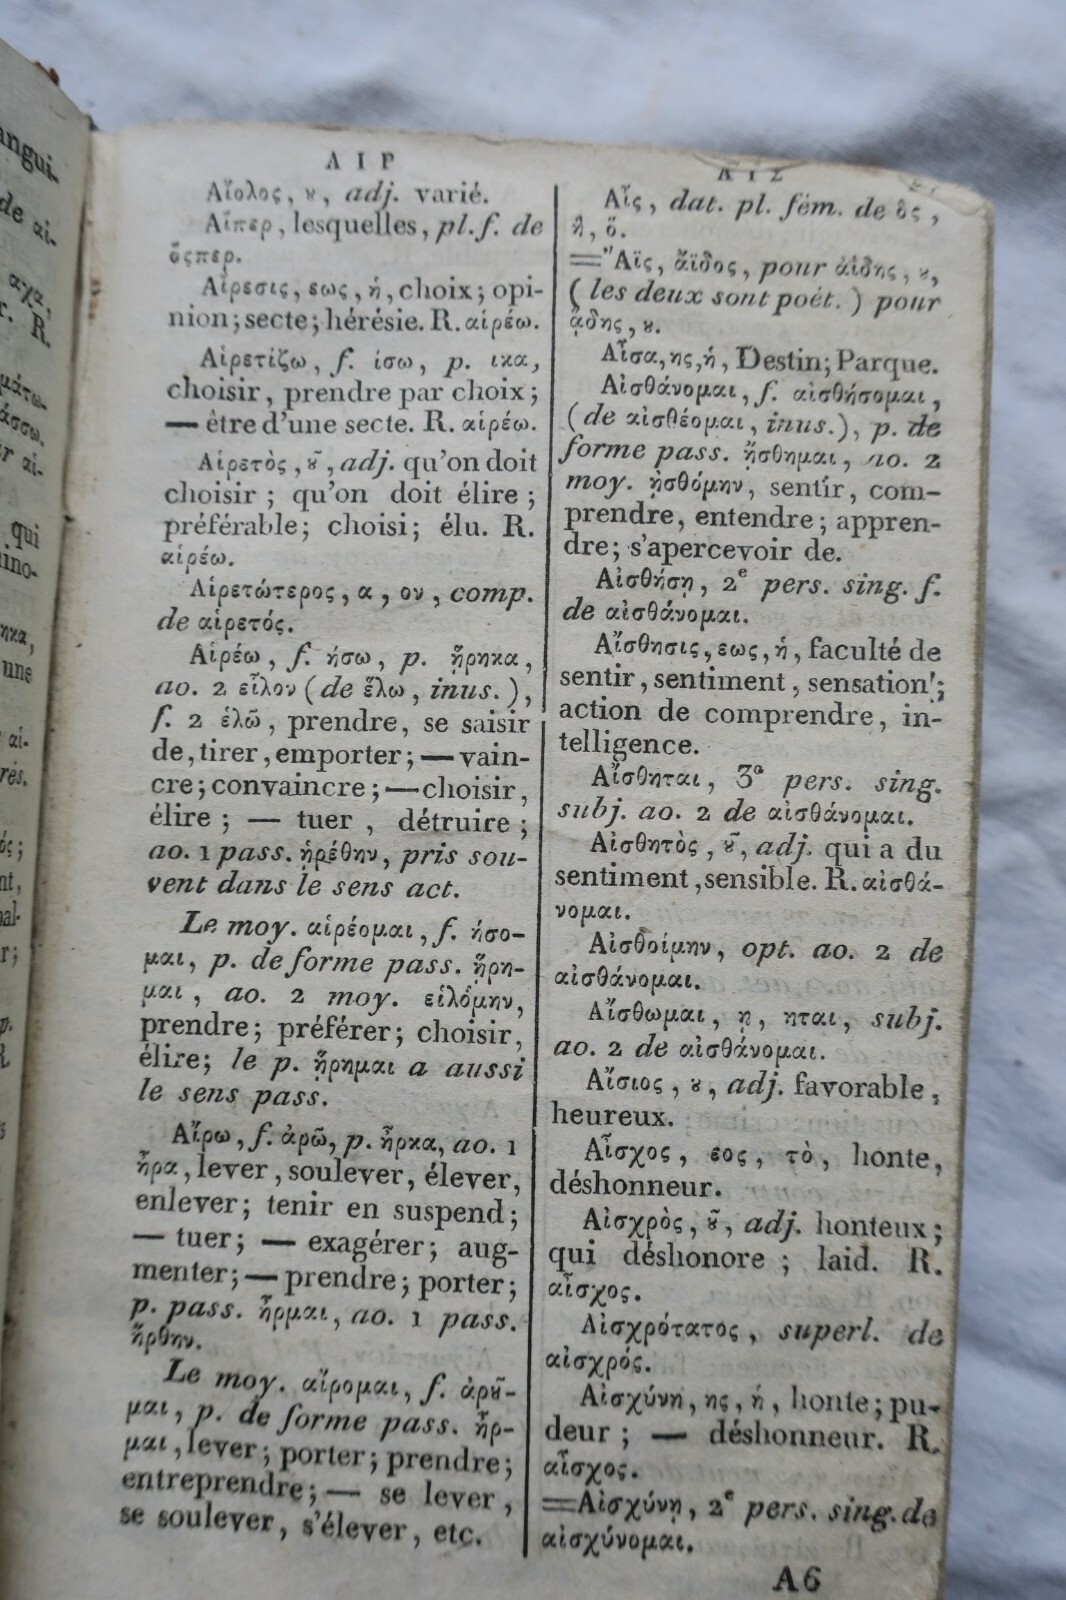 angui-
de αἰ-
αχα,
r. R.
μάτω-
άσσω.
r αἰ-
qui
ino-
ηκα,
une
αἰ-
rés.
ός;
nt,
bal-
r;
p.
R.
ΑΙΡ
Αἴολος, ȣ, adj. varié.
Αἵπερ, lesquelles, pl. f. de
ὅςπερ.
Αἵρεσις, εως, ἡ, choix; opi-
nion; secte; hérésie. R. αἱρέω.
Αἱρετίζω, f. ίσω, p. ικα,
choisir, prendre par choix;
— être d'une secte. R. αἱρέω.
Αἱρετὸς, ȣ͂, adj. qu'on doit
choisir; qu'on doit élire;
préférable; choisi; élu. R.
αἱρέω.
Αἱρετώτερος, α, ον, comp.
de αἱρετός.
Αἱρέω, f. ήσω, p. ᾕρηκα,
ao. 2 εἷλον (de ἕλω, inus.),
f. 2 ἑλῶ, prendre, se saisir
de, tirer, emporter; — vain-
cre; convaincre; — choisir,
élire; — tuer, détruire;
ao. 1 pass. ᾑρέθην, pris sou-
vent dans le sens act.
Le moy. αἱρέομαι, f. ήσο-
μαι, p. de forme pass. ᾕρη-
μαι, ao. 2 moy. εἱλόμην,
prendre; préférer; choisir,
élire; le p. ᾕρημαι a aussi
le sens pass.
Αἴρω, f. ἀρῶ, p. ἦρκα, ao. 1
ἦρα, lever, soulever, élever,
enlever; tenir en suspend;
— tuer; — exagérer; aug-
menter; — prendre; porter;
p. pass. ἦρμαι, ao. 1 pass.
ἤρθην.
Le moy. αἴρομαι, f. ἀρȣ͂-
μαι, p. de forme pass. ἦρ-
μαι, lever; porter; prendre;
entreprendre; — se lever,
se soulever, s'élever, etc.
ΑΙΣ
Αἷς, dat. pl. fém. de ὃς,
ἣ, ὅ.
="Αϊς, ἄϊδος, pour ἀίδης, ȣ,
(les deux sont poét.) pour
ᾅδης, ȣ.
Αἶσα, ης, ἡ, Destin; Parque.
Αἰσθάνομαι, f. αἰσθήσομαι,
(de αἰσθέομαι, inus.), p. de
forme pass. ᾔσθημαι, ao. 2
moy. ᾐσθόμην, sentir, com-
prendre, entendre; appren-
dre; s'apercevoir de.
Αἰσθήσῃ, 2e pers. sing. f.
de αἰσθάνομαι.
Αἴσθησις, εως, ἡ, faculté de
sentir, sentiment, sensation;
action de comprendre, in-
telligence.
Αἴσθηται, 3e pers. sing.
subj. ao. 2 de αἰσθάνομαι.
Αἰσθητὸς, ȣ͂, adj. qui a du
sentiment, sensible. R. αἰσθά-
νομαι.
Αἰσθοίμην, opt. ao. 2 de
αἰσθάνομαι.
Αἴσθωμαι, ῃ, ηται, subj.
ao. 2 de αἰσθάνομαι.
Αἴσιος, ȣ, adj. favorable,
heureux.
Αἶσχος, εος, τὸ, honte,
déshonneur.
Αἰσχρὸς, ȣ͂, adj. honteux;
qui déshonore; laid. R.
αἶσχος.
Αἰσχρότατος, superl. de
αἰσχρός.
Αἰσχύνη, ης, ἡ, honte; pu-
deur; — déshonneur. R.
αἶσχος.
=Αἰσχύνῃ, 2e pers. sing. de
αἰσχύνομαι.
A6